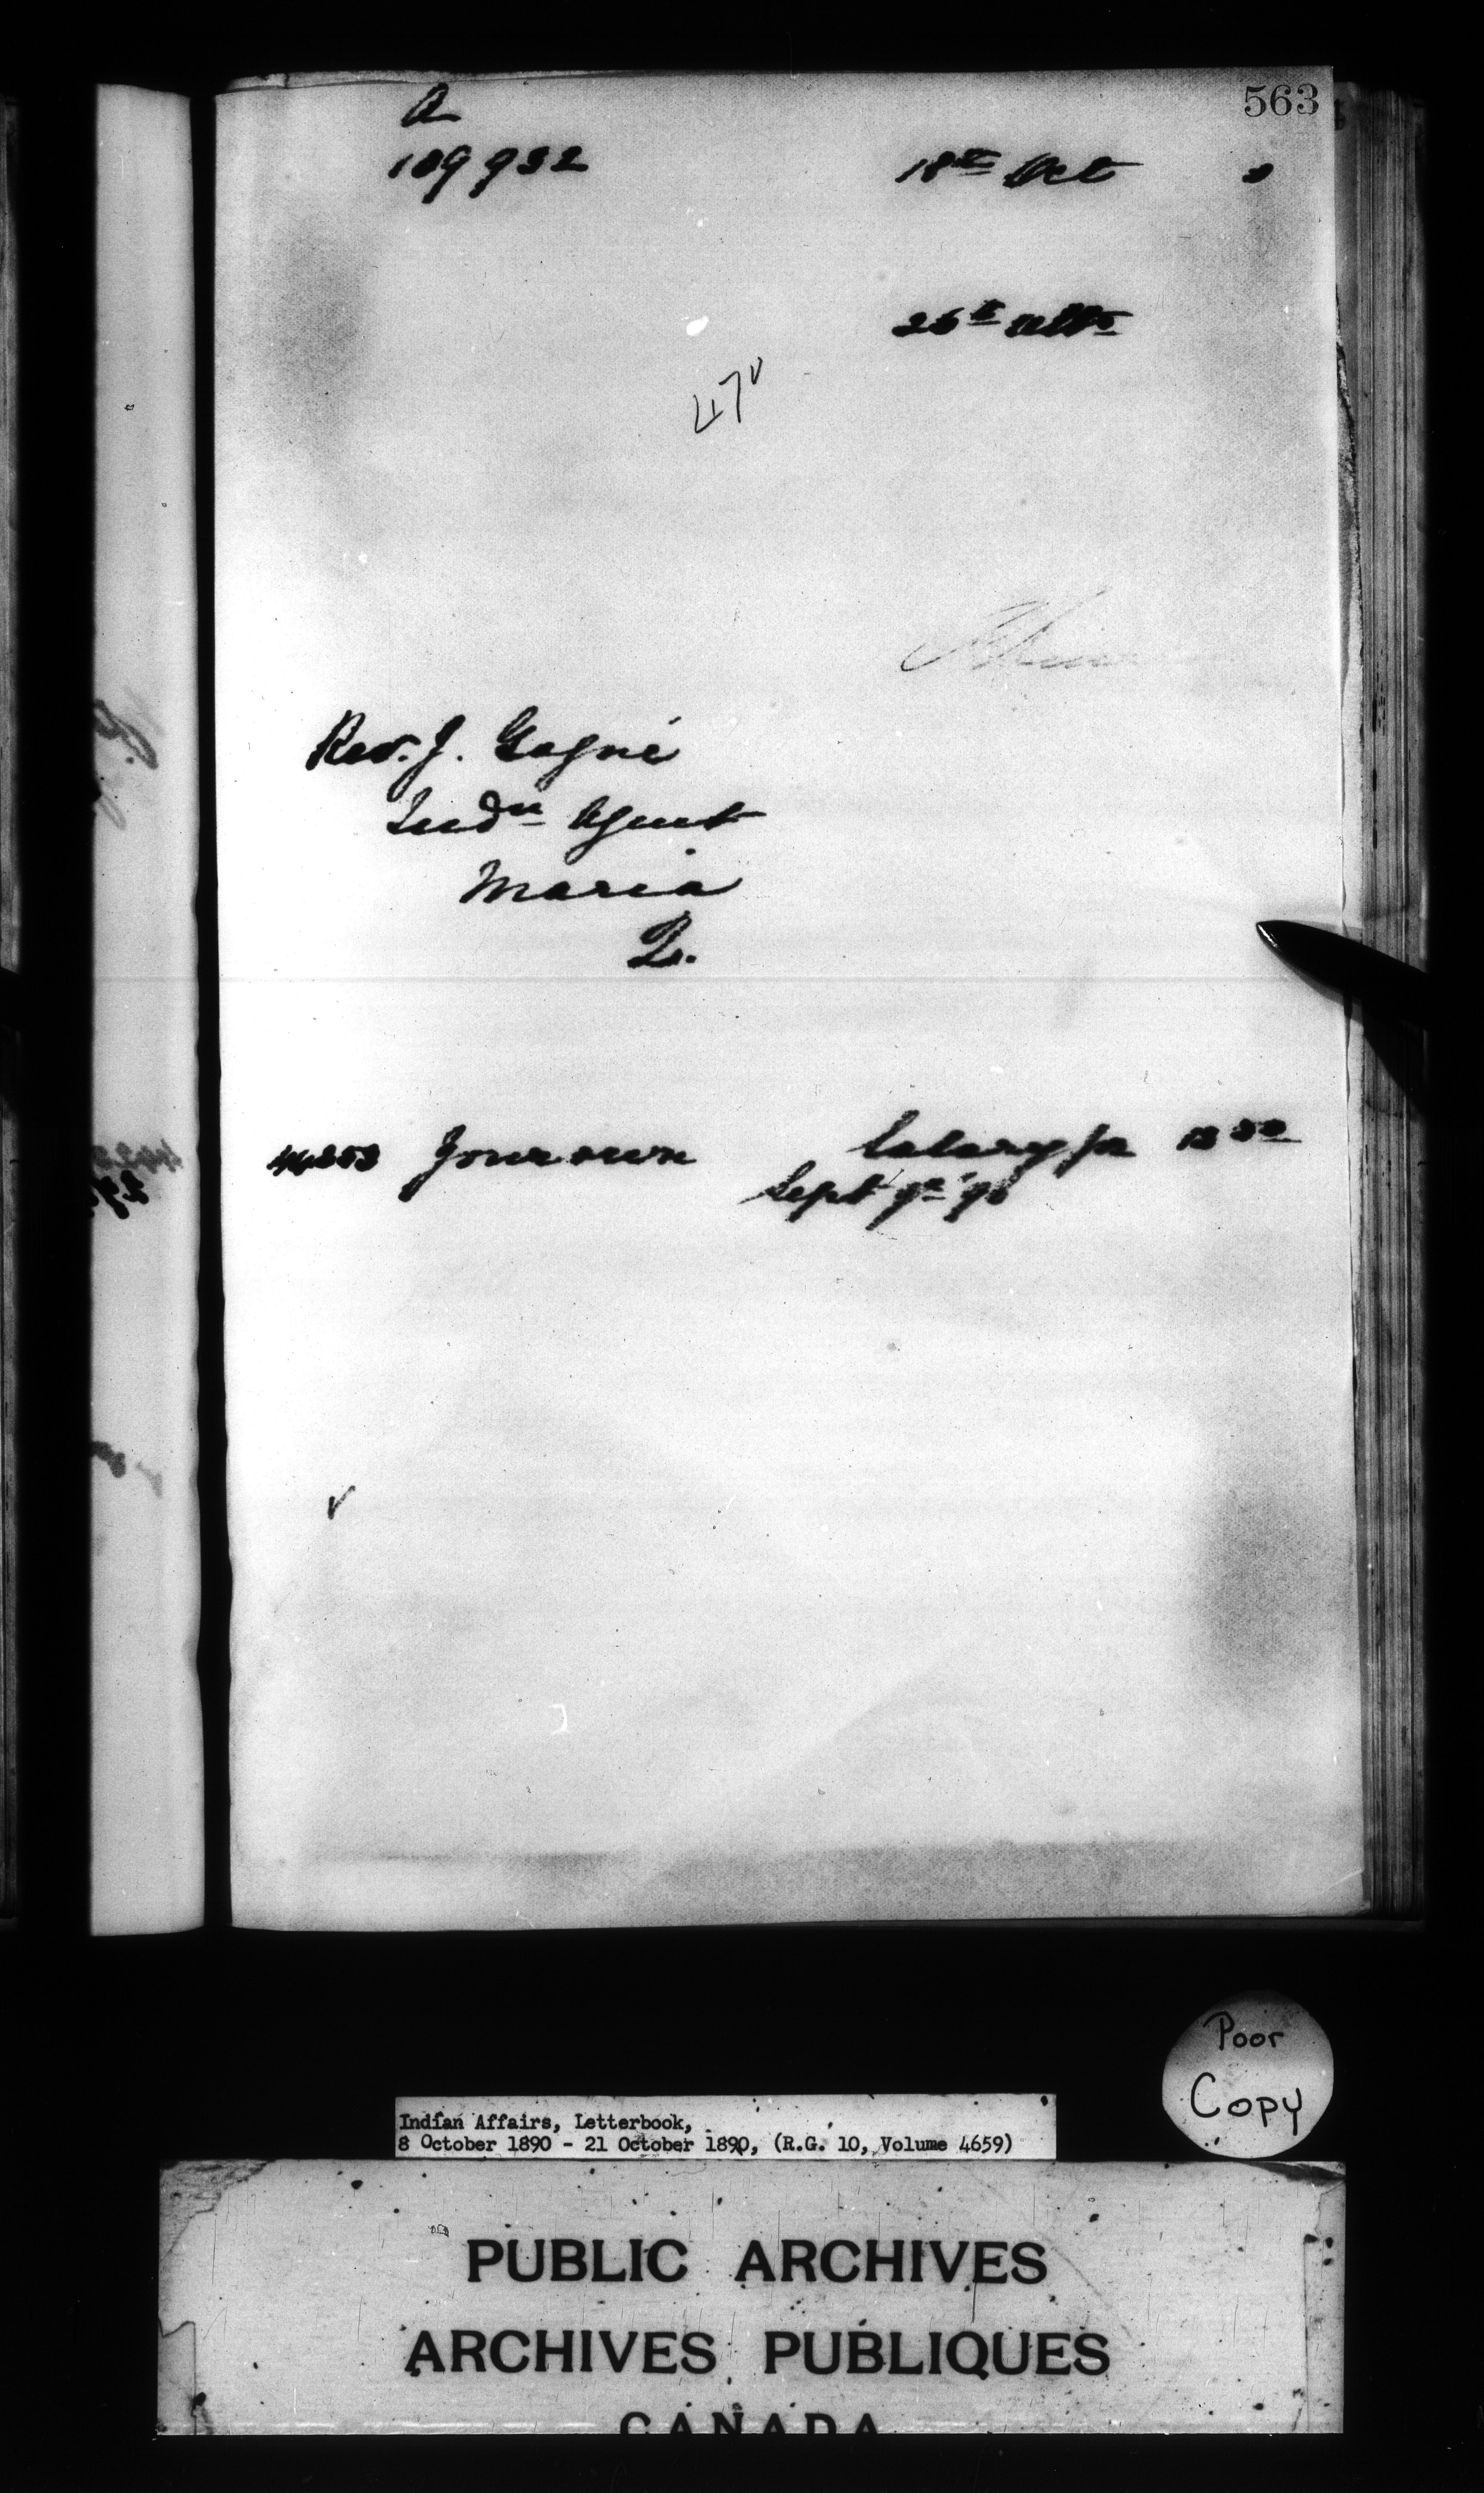 563
A
109932 18th Oct 0
26th ulto
47
Rev. J. Gagné
Indn Agent
Maria
Q.
Your own Salary for 12 50
Sept qr '90
Poor
Copy
Indian Affairs, Letterbook,
8 October 1890 - 21 October 1890, (R.G. 10, Volume 4659)
PUBLIC ARCHIVES
ARCHIVES PUBLIQUES
CANADA